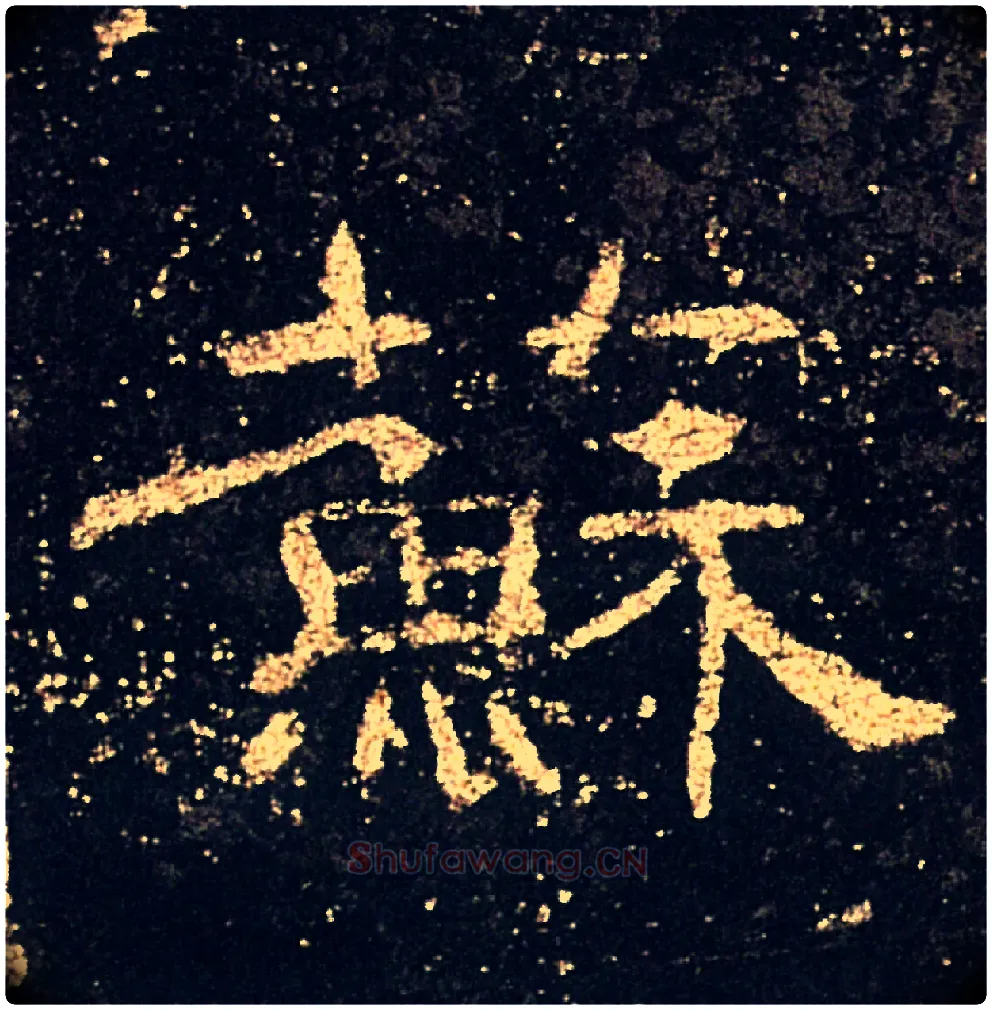 蘇
Shufawang.CN